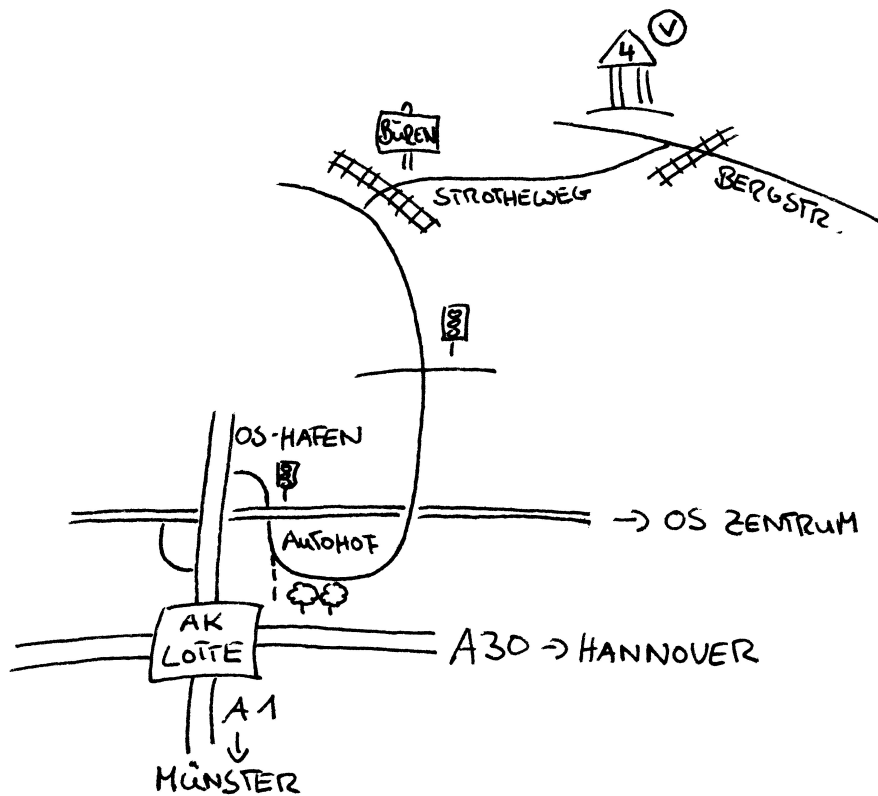 4
V
BÜREN
STROTHEWEG
BERGSTR.
OS-HAFEN
→ OS ZENTRUM
AUTOHOF
AK
LOTTE
A30 → HANNOVER
A1
↓
MÜNSTER